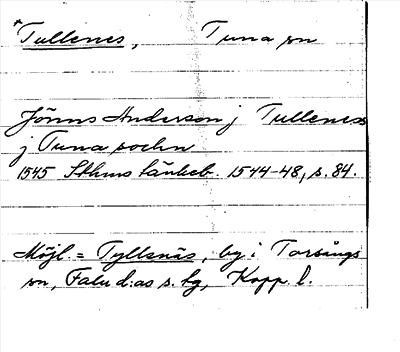 *Tullenes, Tuna sn
Jönns Anderson j Tulleness
j Tuna sochn
1545 Sthms tänkeb. 1544-48, s. 84.
Möjl. = Tyllsnäs, by i Torsångs
sn, Falu d:as s. bg, Kopp. l.